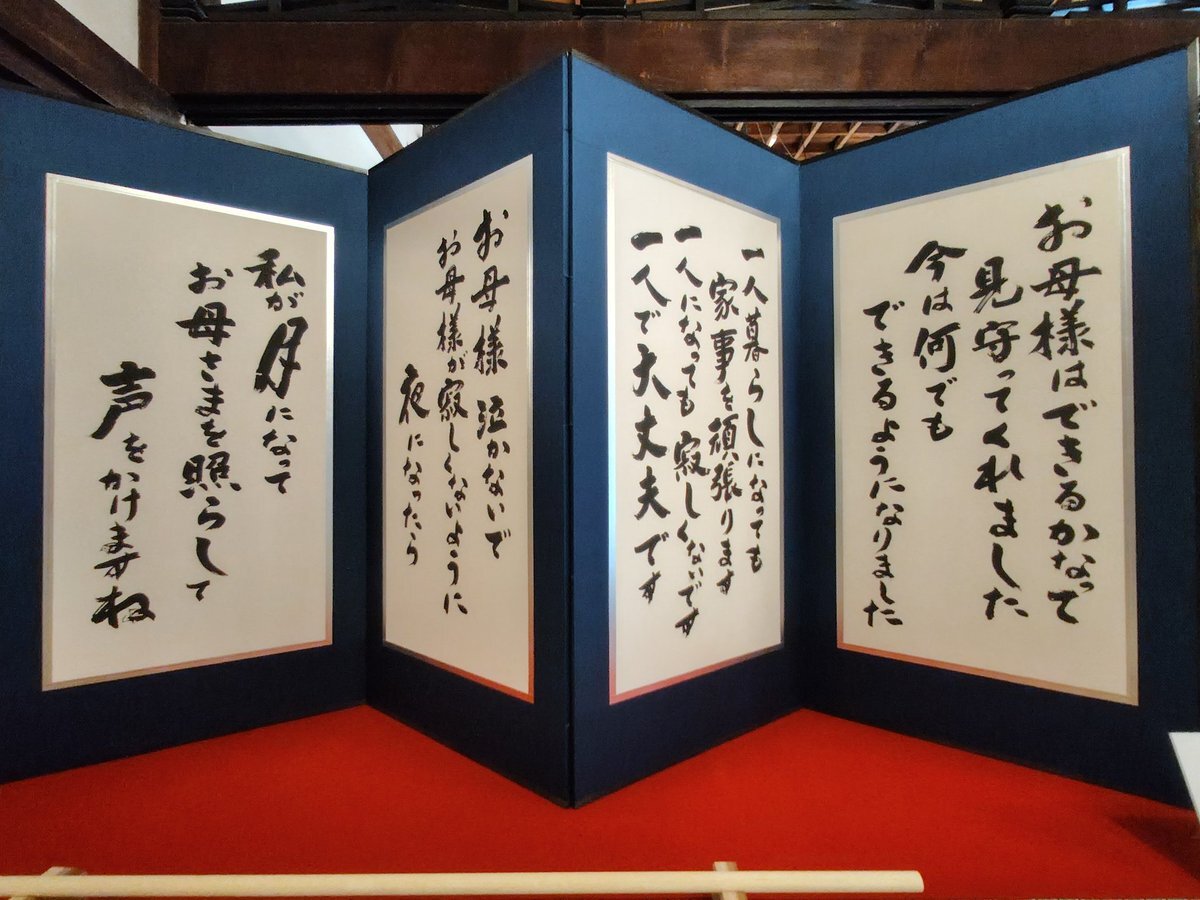 お母様はできるかなって
見守ってくれました
今は何でも
できるようになりました
一人暮らしになっても
家事を頑張ります
一人になっても寂しくないです
一人で大丈夫です
お母様 泣かないで
お母様が寂しくないように
夜になったら
私が月になって
お母さまを照らして
声をかけますね